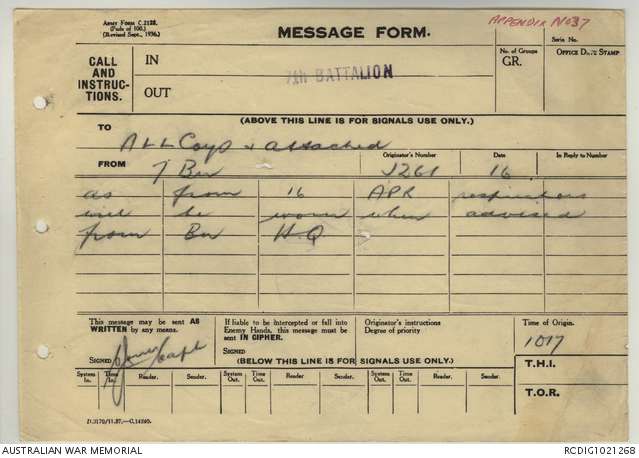 Army Form C.2128.
(Pads of 100.)
(Revised Sept., 1936.)
MESSAGE FORM.
APPENDIX No 37
Serial No.
CALL
AND
INSTRUC-
TIONS.
IN
OUT
7th BATTALION
No. of Groups
GR.
OFFICE DATE STAMP
(ABOVE THIS LINE IS FOR SIGNALS USE ONLY.)
TO
ALL Coys + attached
FROM
7 Bn
Originator's Number
J261
Date
16
In Reply to Number
as from 16 APR respirators
will be worn when advised
from Bn H.Q.
This message may be sent AS
WRITTEN by any means.
SIGNED
Capt
If liable to be intercepted or fall into
Enemy Hands, this message must be
sent IN CIPHER.
SIGNED
Originator's instructions
Degree of priority
Time of Origin.
1017
(BELOW THIS LINE IS FOR SIGNALS USE ONLY.)
T.H.I.
T.O.R.
System In.
Time In.
Reader.
Sender.
System Out.
Time Out.
Reader
Sender.
System Out.
Time Out.
Reader.
Sender.
D.3170/11.37.—C.14240.
AUSTRALIAN WAR MEMORIAL
RCDIG1021268